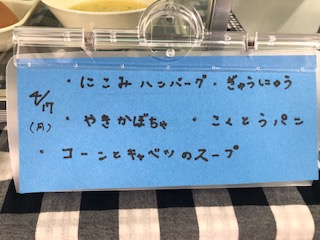 4/17
(月)
・にこみハンバーグ・ぎゅうにゅう
・やきかぼちゃ ・こくとうパン
・コーンとキャベツのスープ